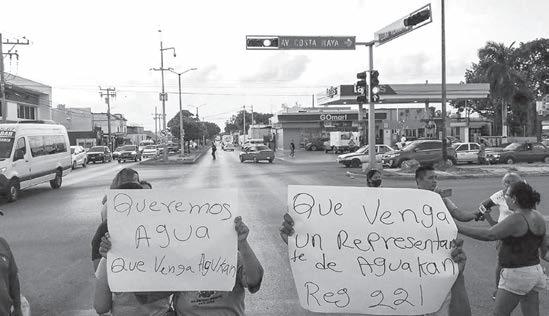 AV. COSTA MAYA
GOmart
Queremos
Agua
Que Venga AguKan
Que Venga
un Representan
te de Aguakan
Reg 221